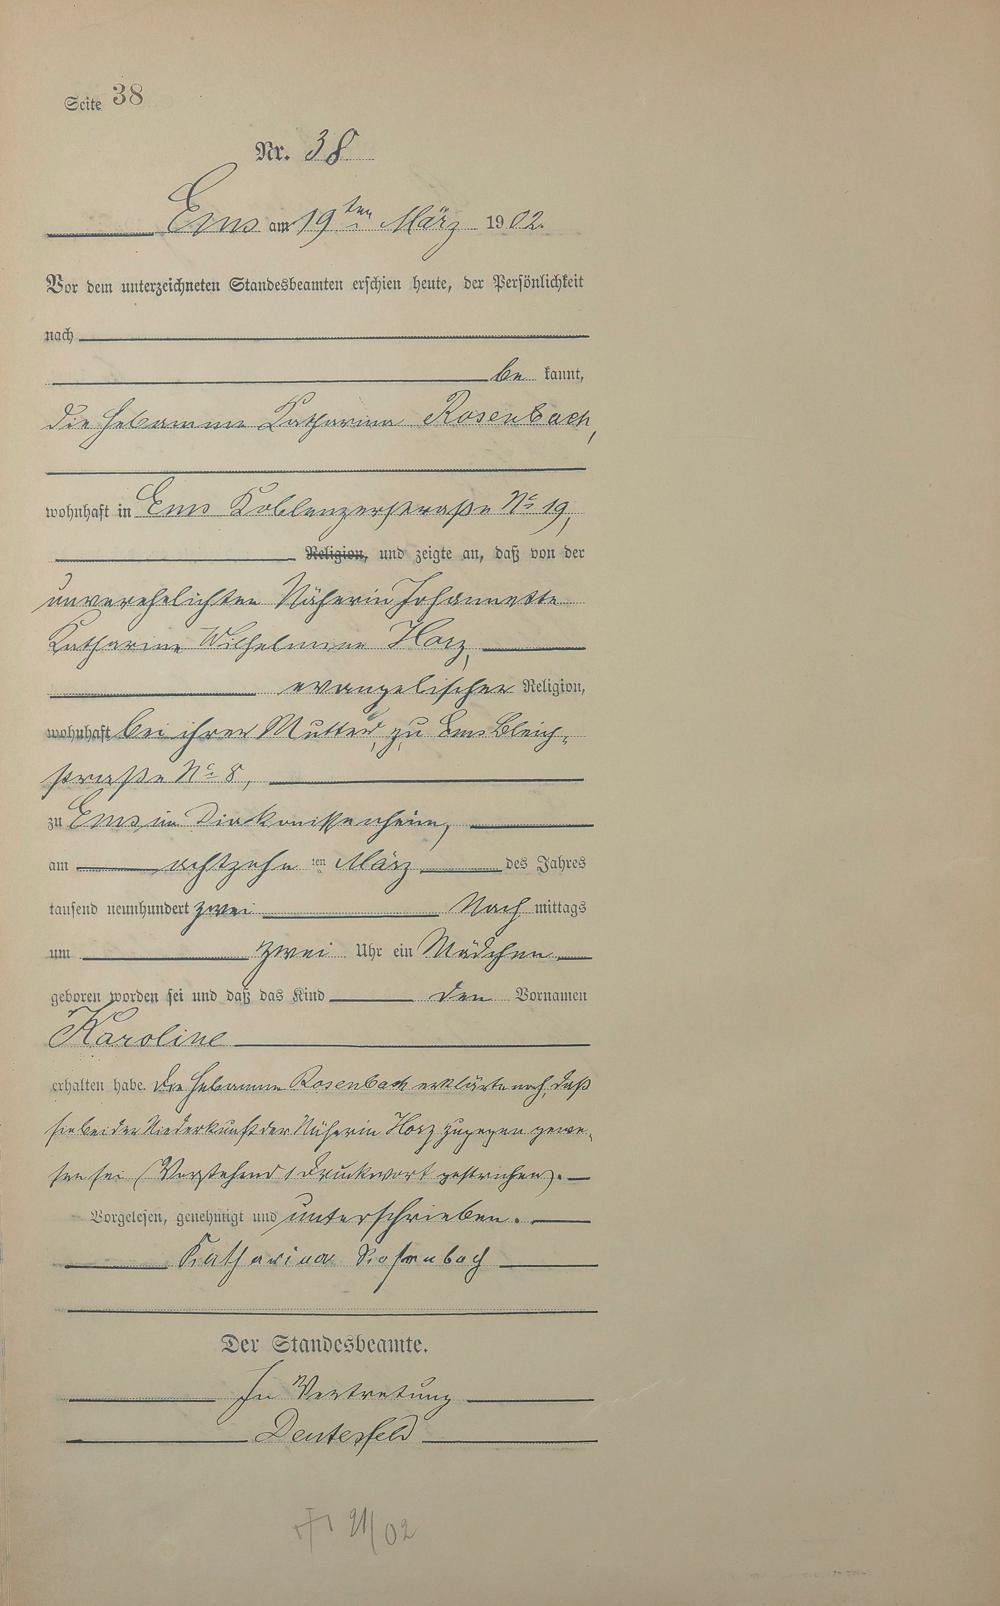 Seite 38
Nr. 38
Ems am 19ten März 1902.
Vor dem unterzeichneten Standesbeamten erschien heute, der Persönlichkeit
nach
be kannt,
die Hebamme Katharina Rosenbach,
wohnhaft in Ems Koblenzerstraße No 19,
Religion, und zeigte an, daß von der
unverehelichten Näherin Johannette
Katharine Wilhelmine Horz,
evangelischer Religion,
wohnhaft bei ihrer Mutter, zu Ems Bleich-
straße No 8,
zu Ems, im Diakonissenheim,
am achtzehn ten März des Jahres
tausend neunhundert zwei Nach mittags
um zwei Uhr ein Mädchen
geboren worden sei und daß das Kind den Vornamen
Karoline
erhalten habe. Die Hebamme Rosenbach erklärte noch, daß
sie bei der Niederkunft der Näherin Horz zugegen gewe-
sen sei (Vorstehend 1 Druckwort gestrichen).
Vorgelesen, genehmigt und unterschrieben.
Katharina Rosenbach
Der Standesbeamte.
In Vertretung
Deutesfeld
† 21/02